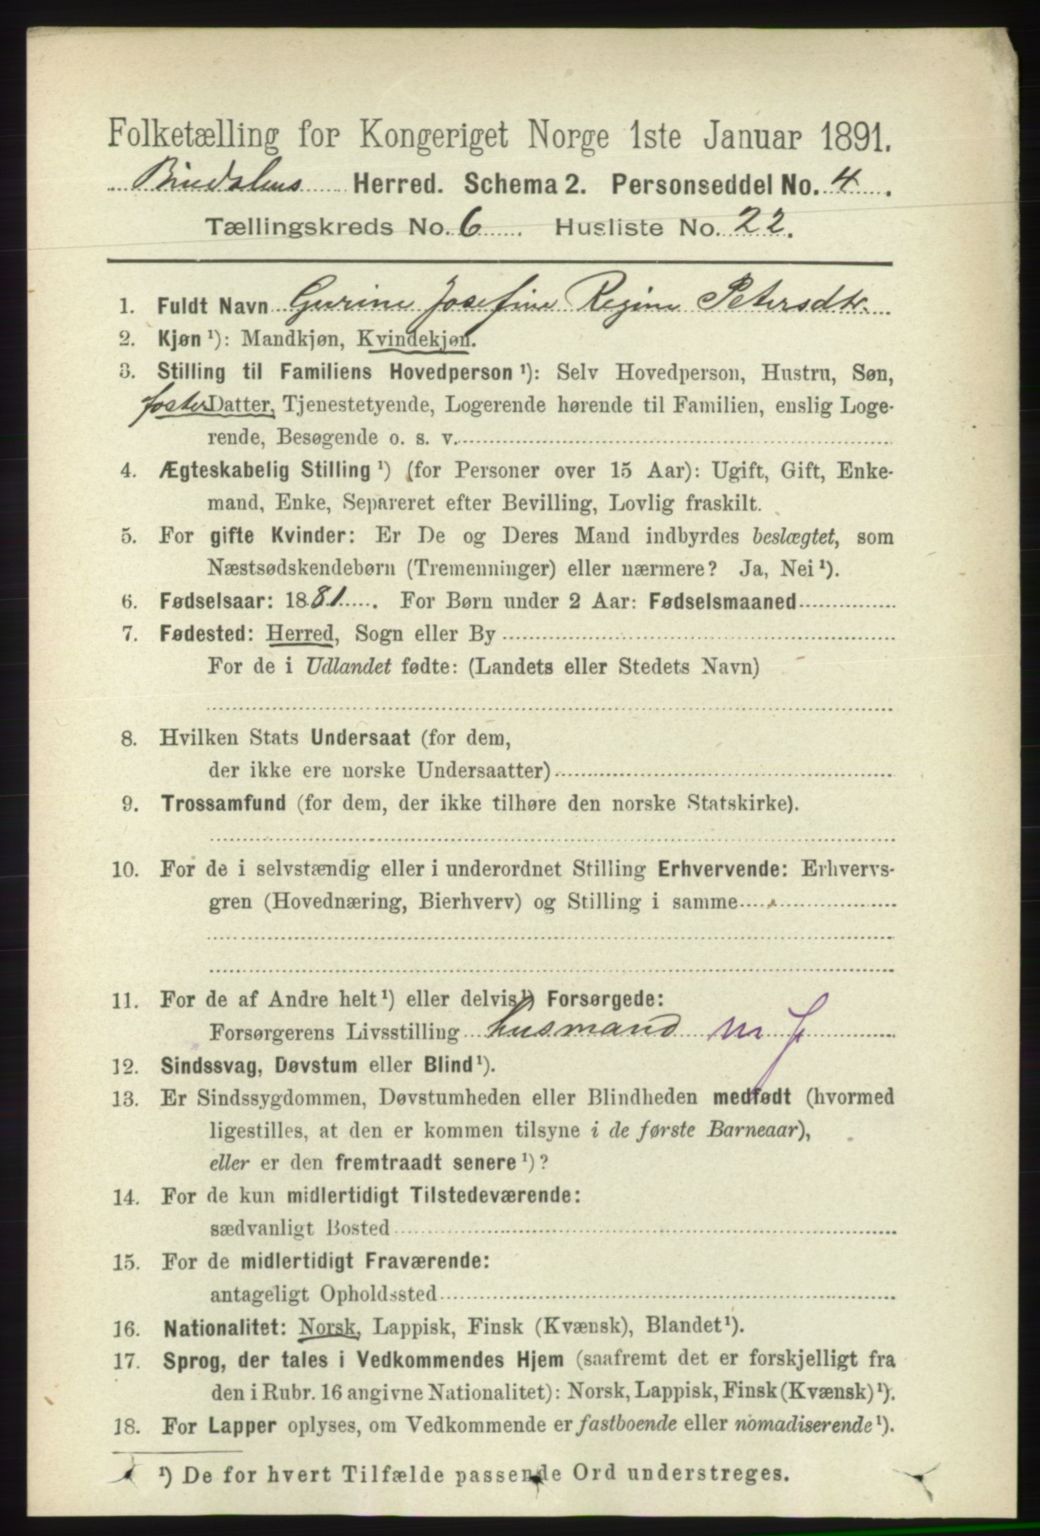 Folketælling for Kongeriget Norge 1ste Januar 1891.
Bindalens Herred. Schema 2. Personseddel No. 4.
Tællingskreds No. 6. Husliste No. 22.
1. Fuldt Navn Gurine Josefine Regine Petersdtr.
2. Kjøn ¹): Mandkjøn, Kvindekjøn.
3. Stilling til Familiens Hovedperson ¹): Selv Hovedperson, Hustru, Søn,
foster Datter, Tjenestetyende, Logerende hørende til Familien, enslig Loge-
rende, Besøgende o. s. v.
4. Ægteskabelig Stilling ¹) (for Personer over 15 Aar): Ugift, Gift, Enke-
mand, Enke, Separeret efter Bevilling, Lovlig fraskilt.
5. For gifte Kvinder: Er De og Deres Mand indbyrdes beslægtet, som
Næstsødskendebørn (Tremenninger) eller nærmere? Ja, Nei ¹).
6. Fødselsaar: 1881. For Børn under 2 Aar: Fødselsmaaned
7. Fødested: Herred, Sogn eller By
For de i Udlandet fødte: (Landets eller Stedets Navn)
8. Hvilken Stats Undersaat (for dem,
der ikke ere norske Undersaatter)
9. Trossamfund (for dem, der ikke tilhøre den norske Statskirke).
10. For de i selvstændig eller i underordnet Stilling Erhvervende: Erhvervs-
gren (Hovednæring, Bierhverv) og Stilling i samme
11. For de af Andre helt ¹) eller delvis ¹) Forsørgede:
Forsørgerens Livsstilling husmand m j
12. Sindssvag, Døvstum eller Blind ¹).
13. Er Sindssygdommen, Døvstumheden eller Blindheden medfødt (hvormed
ligestilles, at den er kommen tilsyne i de første Barneaar),
eller er den fremtraadt senere ¹)?
14. For de kun midlertidigt Tilstedeværende:
sædvanligt Bosted
15. For de midlertidigt Fraværende:
antageligt Opholdssted
16. Nationalitet: Norsk, Lappisk, Finsk (Kvænsk), Blandet ¹).
17. Sprog, der tales i Vedkommendes Hjem (saafremt det er forskjelligt fra
den i Rubr. 16 angivne Nationalitet): Norsk, Lappisk, Finsk (Kvænsk) ¹).
18. For Lapper oplyses, om Vedkommende er fastboende eller nomadiserende ¹).
¹) De for hvert Tilfælde passende Ord understreges.